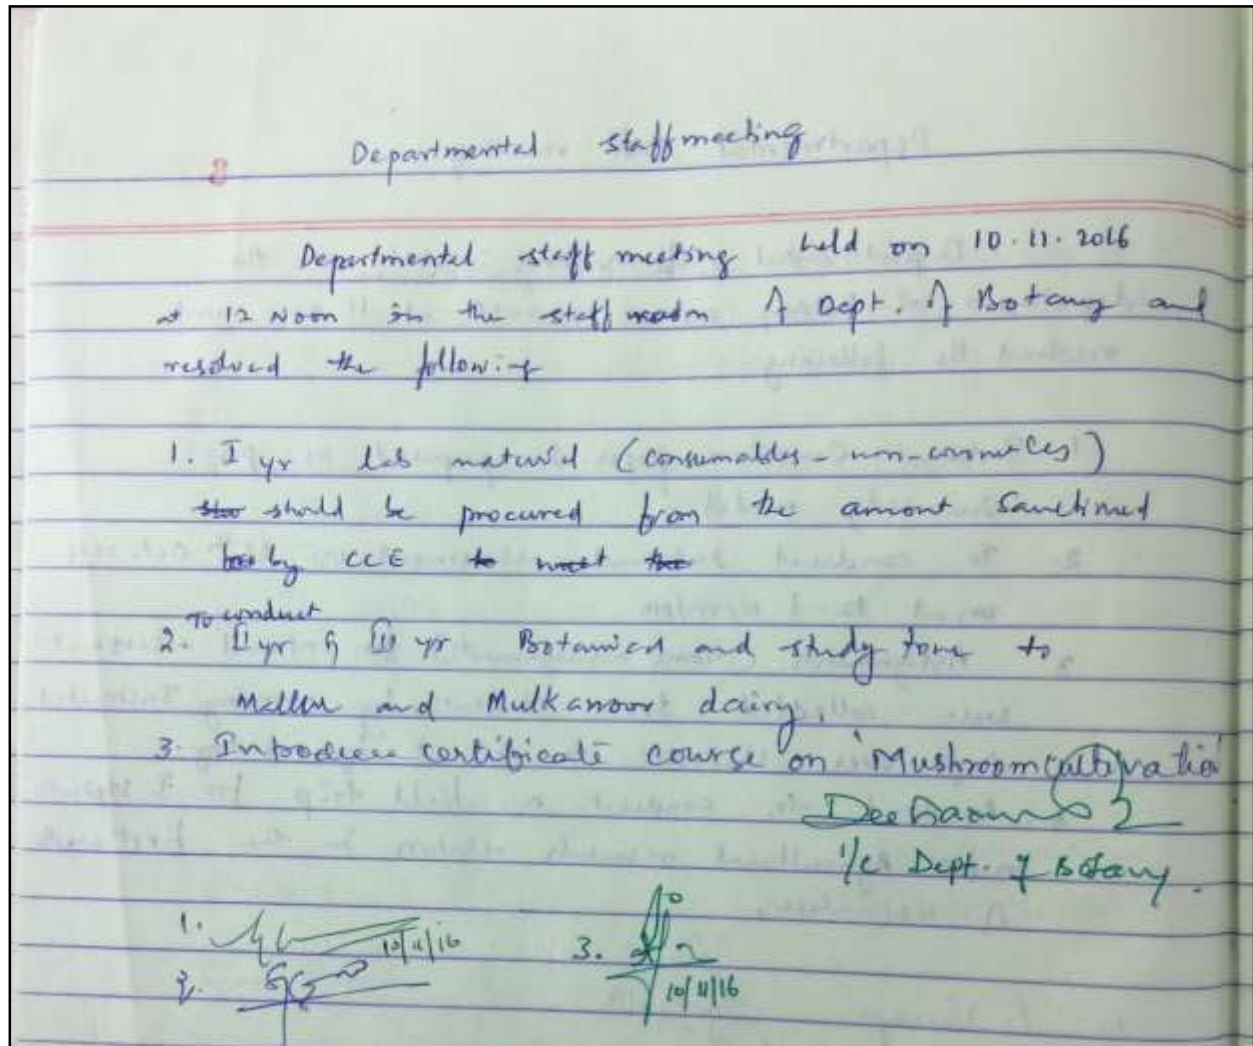 Departmental staff meeting
Departmental staff meeting held on 10.11.2016
at 12 Noon in the staff room of Dept. of Botany and
resolved the following
1. I yr lab material (consumables - non-
should be procured from the amount sanctioned
by CCE
To conduct
2. II yr & III yr Botanical and study tour to
and Mulkanoor dairy.
3. Introduce certificate course on 'Mushroom cultivation'
I/c Dept. of Botany.
1.
10/11/16
3.
2.
10/11/16